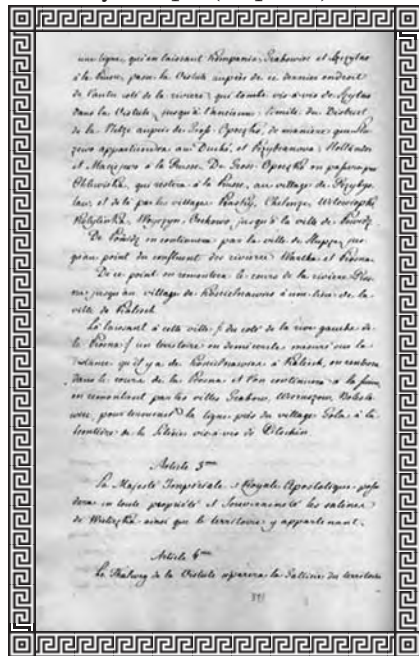 une ligne, qui en laissant Kompania, Grabowiec et Szczytno
à la Prusse, passe la Vistule auprès de ce dernier endroit
de l'autre coté de la rivière, qui tombe vis-à-vis de Szczytno
dans la Vistule, jusqu'à l'ancienne limite du District
de la Netze auprès de Gross-Opoczko, de manière que Slu-
zewo appartiendra au Duché, et Przybranowa, Hollænder
et Maciejewo à la Prusse. De Gross-Opoczko on passera par
Chlewiska, qui restera à la Prusse, au village de Przybys-
law, et de là par les villages Piaski, Chelmce, Witowiczki
Kobylinka, Woyczyn, Orchowo, jusqu'à la ville de Powidz.
De Powidz on continuera par la ville de Slupce, jus-
qu'au point du confluent des rivières Wartha et Prosna.
De ce point on remontera le cours de la rivière Pros-
na, jusqu'au village de Koscielnawies à une lieu de la
ville de Kalisch.
Là laissant à cette ville (du coté de la rive gauche de
la Prosna) un territoire en demi cercle mesuré sur la
distance qu'il y a de Koscielnawies à Kalisch, on rentrera
dans le cours de la Prosna et l'on continuera à la suivre
en remontant par les villes Grabow, Wieruszow, Bolesla-
wiec, pour terminer la ligne près du village Gola à la
frontière de la Silésie vis-à-vis de Pitschin.
Article 5me
Sa Majesté Impériale et Royale Apostolique possé-
dera en toute propriété et Souveraineté les salines
de Wieliczka ainsi que le territoire y appartenant.
Article 6me
Le Thalweg de la Vistule séparera la Gallicie du territoire